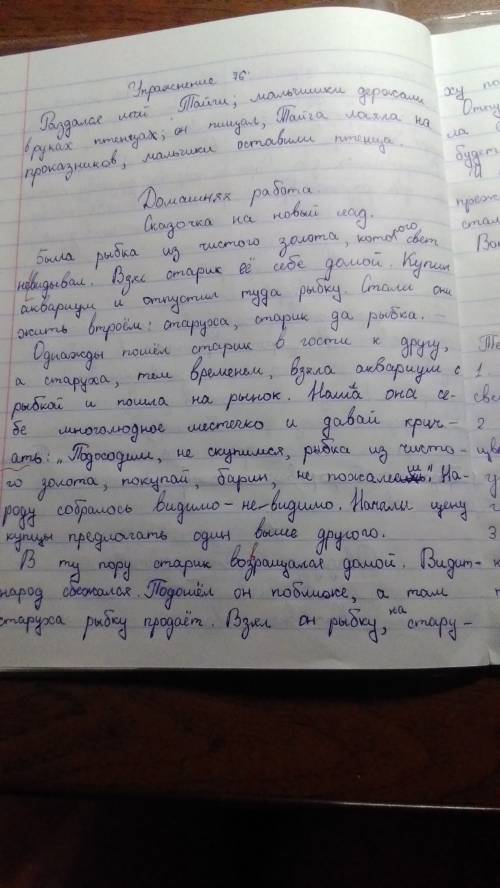 Упражнение 76.
Раздался лай Тайги; мальчишки держали
в руках птенцах; он пищал, Тайга лаяла на
проказников, мальчики оставили птенца.
Домашняя работа.
Сказочка на новый лад.
Была рыбка из чистого золота, которого свет
невидывал. Взял старик её себе домой. Купил
аквариум и отпустил туда рыбку. Стали они
жить втроём: старуха, старик да рыбка.
Однажды пошёл старик в гости к другу,
а старуха, тем временем, взяла аквариум с
рыбкой и пошла на рынок. Нашла она се-
бе многолюдное местечко и давай крич-
ать: „Подходим, не скупимся, рыбка из чисто-
го золота, покупай, барин, не пожалеешь". На-
роду собралось видимо-не-видимо. Начали цену
купцы предлагать один выше другого.
В ту пору старик возвращался домой. Видит-
народ сбежался. Подошёл он поближе, а там
старуха рыбку продаёт. Взял он рыбку, на стару-
ху по
Отпу
ла
будет
преж
стал
Во
Те
1.
све
2
цве
3